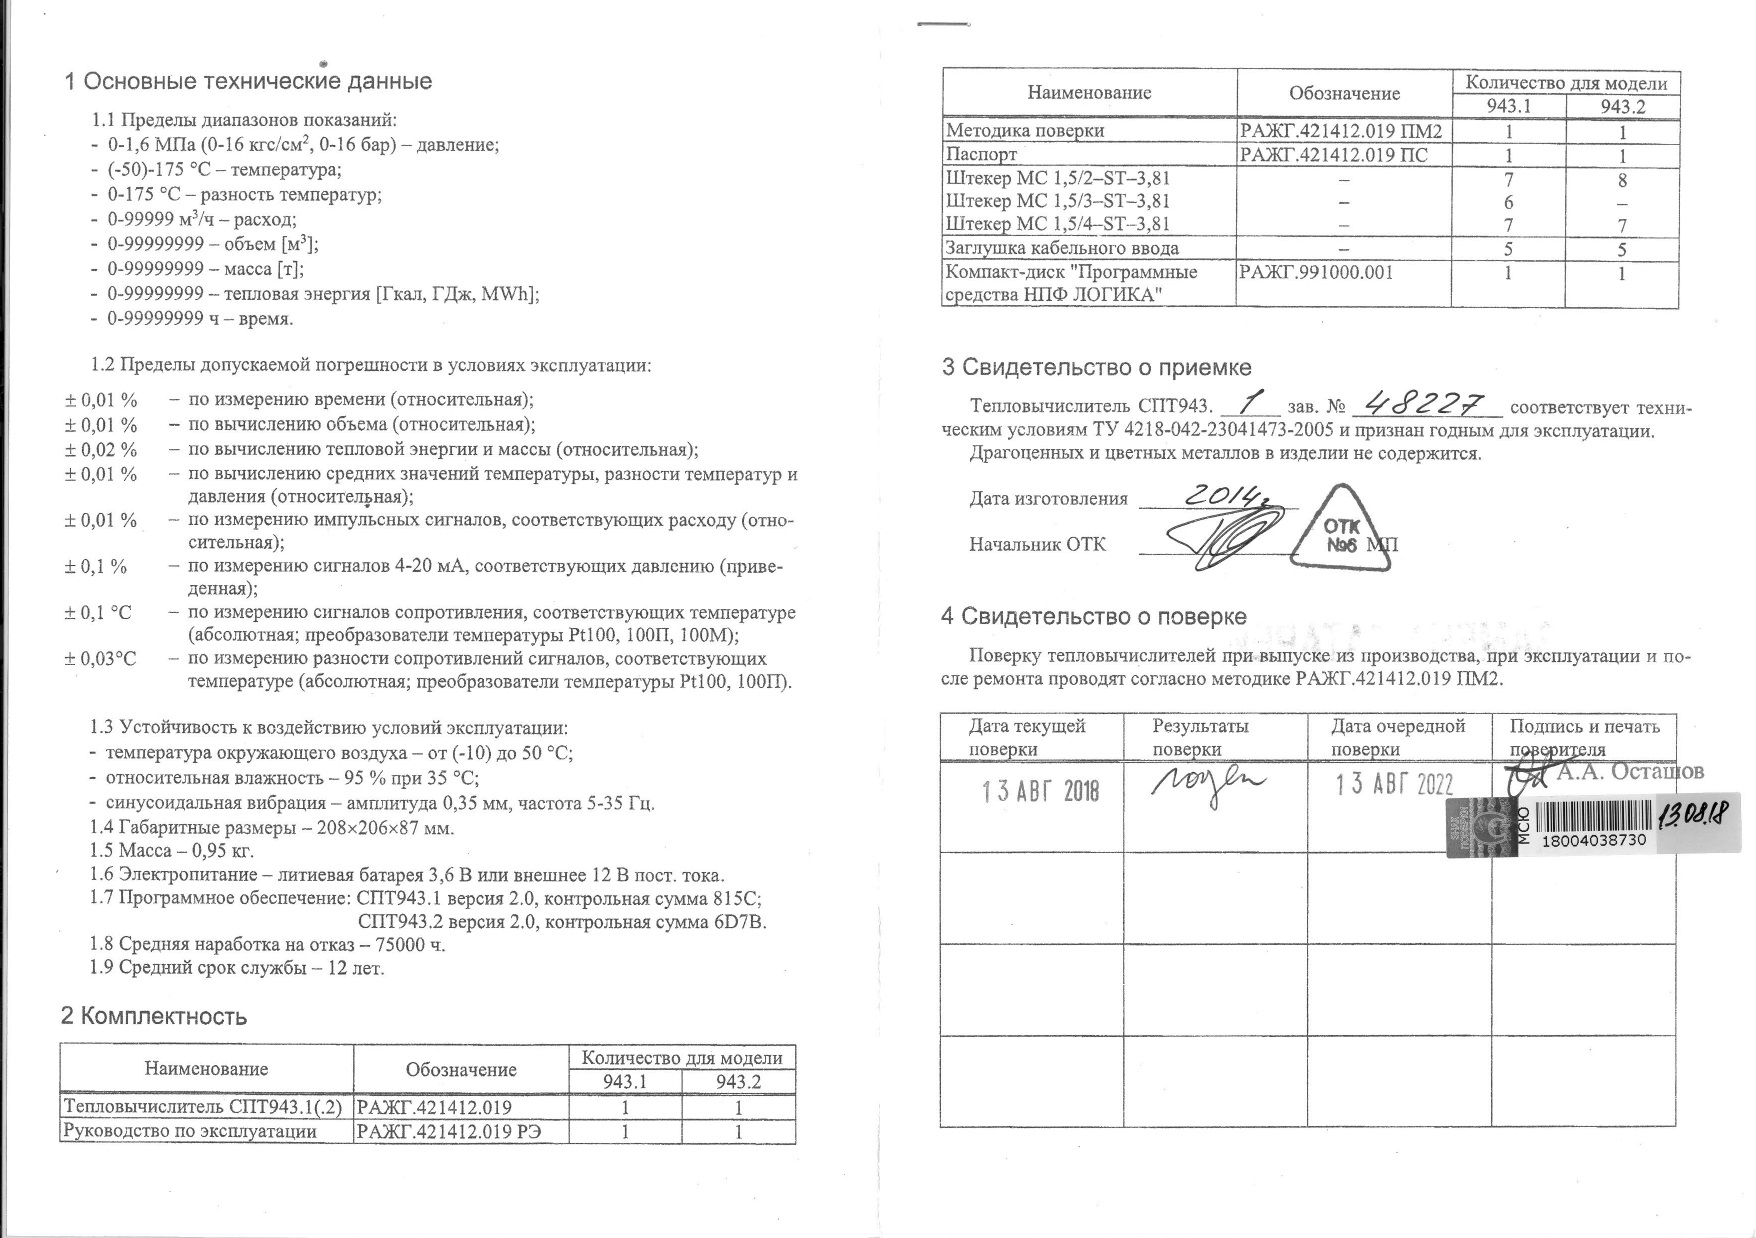 1 Основные технические данные
1.1 Пределы диапазонов показаний:
- 0-1,6 МПа (0-16 кгс/см², 0-16 бар) – давление;
- (-50)-175 °С – температура;
- 0-175 °С – разность температур;
- 0-99999 м³/ч – расход;
- 0-99999999 – объем [м³];
- 0-99999999 – масса [т];
- 0-99999999 – тепловая энергия [Гкал, ГДж, MWh];
- 0-99999999 ч – время.
1.2 Пределы допускаемой погрешности в условиях эксплуатации:
± 0,01 % – по измерению времени (относительная);
± 0,01 % – по вычислению объема (относительная);
± 0,02 % – по вычислению тепловой энергии и массы (относительная);
± 0,01 % – по вычислению средних значений температуры, разности температур и
давления (относительная);
± 0,01 % – по измерению импульсных сигналов, соответствующих расходу (отно-
сительная);
± 0,1 % – по измерению сигналов 4-20 мА, соответствующих давлению (приве-
денная);
± 0,1 °С – по измерению сигналов сопротивления, соответствующих температуре
(абсолютная; преобразователи температуры Pt100, 100П, 100М);
± 0,03°С – по измерению разности сопротивлений сигналов, соответствующих
температуре (абсолютная; преобразователи температуры Pt100, 100П).
1.3 Устойчивость к воздействию условий эксплуатации:
- температура окружающего воздуха – от (-10) до 50 °С;
- относительная влажность – 95 % при 35 °С;
- синусоидальная вибрация – амплитуда 0,35 мм, частота 5-35 Гц.
1.4 Габаритные размеры – 208×206×87 мм.
1.5 Масса – 0,95 кг.
1.6 Электропитание – литиевая батарея 3,6 В или внешнее 12 В пост. тока.
1.7 Программное обеспечение: СПТ943.1 версия 2.0, контрольная сумма 815C;
СПТ943.2 версия 2.0, контрольная сумма 6D7B.
1.8 Средняя наработка на отказ – 75000 ч.
1.9 Средний срок службы – 12 лет.
2 Комплектность
Наименование Обозначение Количество для модели
943.1 943.2
Тепловычислитель СПТ943.1(.2) РАЖГ.421412.019 1 1
Руководство по эксплуатации РАЖГ.421412.019 РЭ 1 1
Наименование Обозначение Количество для модели
943.1 943.2
Методика поверки РАЖГ.421412.019 ПМ2 1 1
Паспорт РАЖГ.421412.019 ПС 1 1
Штекер МС 1,5/2–ST–3,81 – 7 8
Штекер МС 1,5/3–ST–3,81 – 6 –
Штекер МС 1,5/4–ST–3,81 – 7 7
Заглушка кабельного ввода – 5 5
Компакт-диск "Программные РАЖГ.991000.001 1 1
средства НПФ ЛОГИКА"
3 Свидетельство о приемке
Тепловычислитель СПТ943. 1 зав. № 48227 соответствует техни-
ческим условиям ТУ 4218-042-23041473-2005 и признан годным для эксплуатации.
Драгоценных и цветных металлов в изделии не содержится.
Дата изготовления 2014г.
Начальник ОТК МП
ОТК
№6
4 Свидетельство о поверке
Поверку тепловычислителей при выпуске из производства, при эксплуатации и по-
сле ремонта проводят согласно методике РАЖГ.421412.019 ПМ2.
Дата текущей Результаты Дата очередной Подпись и печать
поверки поверки поверки поверителя
13 АВГ 2018 годен 13 АВГ 2022 А.А. Осташов
МСЮ 13.08.18
18004038730